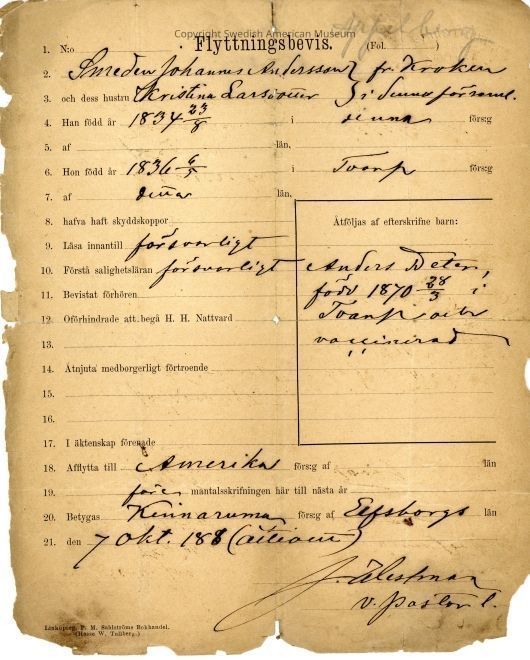 Copyright Swedish American Museum
1. N:o Flyttningsbevis. (Fol. )
2. Smeden Johannes Andersson fr. Kroken
3. och dess hustru Kristina Larsdotter i denna församl.
4. Han född år 1834 23/8 i denna förs:g
5. af län,
6. Hon född år 1836 6/5 i Tvarp förs:g
7. af denna län,
8. hafva haft skyddskoppor
9. Läsa innantill försvarligt
10. Förstå salighetsläran försvarligt
11. Bevistat förhören
12. Oförhindrade att begå H. H. Nattvard
13.
14. Åtnjuta medborgerligt förtroende
15.
16.
17. I äktenskap förenade
Åtföljas af efterskrifne barn:
Anders Peter,
född 1870 28/3 i
Tvarp och
vaccinerad
18. Afflytta till Amerika förs:g af län
19. före mantalsskrifningen här till nästa år
20. Betygas Kinnaruma förs:g af Elfsborgs län
21. den 7 Okt. 188
v. pastor l.
Linköping, P. M. Sahlströms Bokhandel.
(Hasse W. Tullberg.)